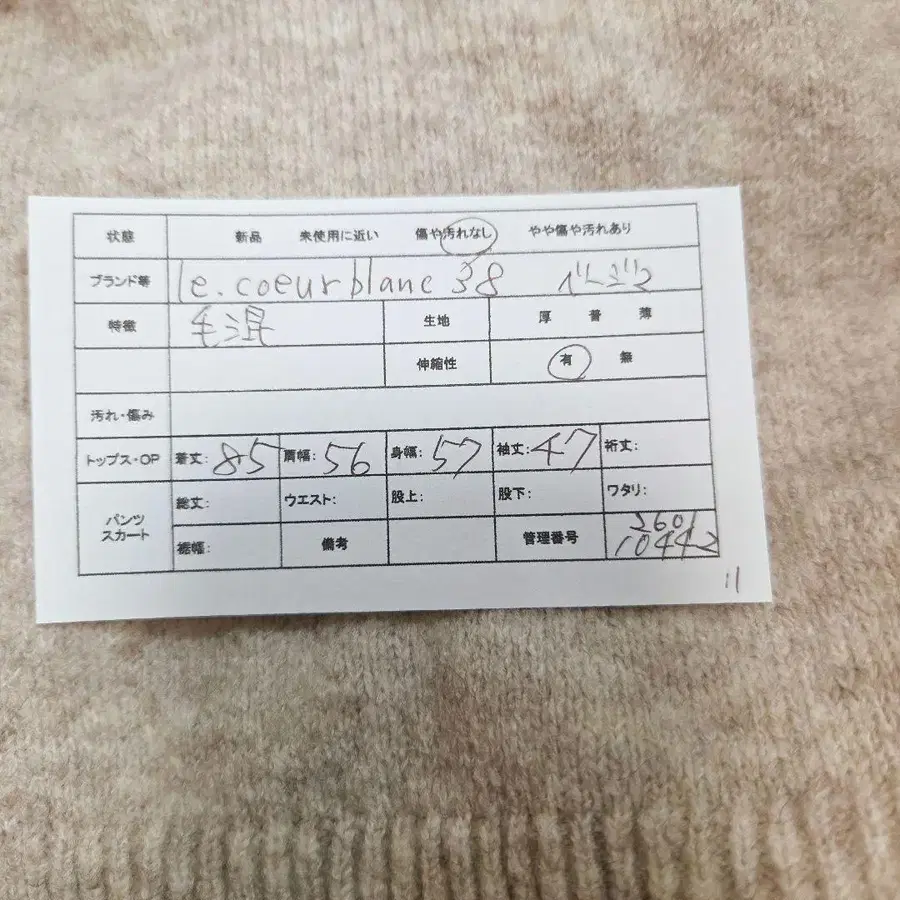 状態 新品 未使用に近い 傷や汚れなし やや傷や汚れあり
ブランド等 le.coeurblanc 38 ベージュ
特徴 毛混 生地 厚 普 薄
伸縮性 有 無
汚れ・傷み
トップス・OP 着丈: 85 肩幅: 56 身幅: 57 袖丈: 47 裄丈:
パンツ スカート 総丈: ウエスト: 股上: 股下: ワタリ:
裾幅: 備考 管理番号 2601 10442
11